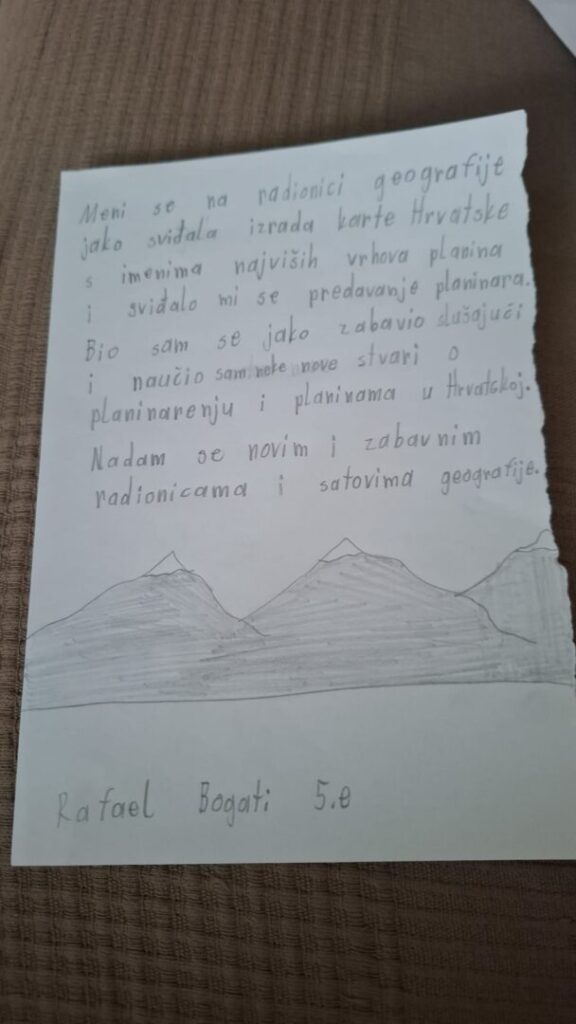 Meni se na radionici geografije
jako sviđala izrada karte Hrvatske
s imenima najviših vrhova planina
i sviđalo mi se predavanje planinara.
Bio sam se jako zabavio slušajući
i naučio sam neke nove stvari o
planinarenju i planinama u Hrvatskoj.
Nadam se novim i zabavnim
radionicama i satovima geografije.
Rafael Bogati 5.e